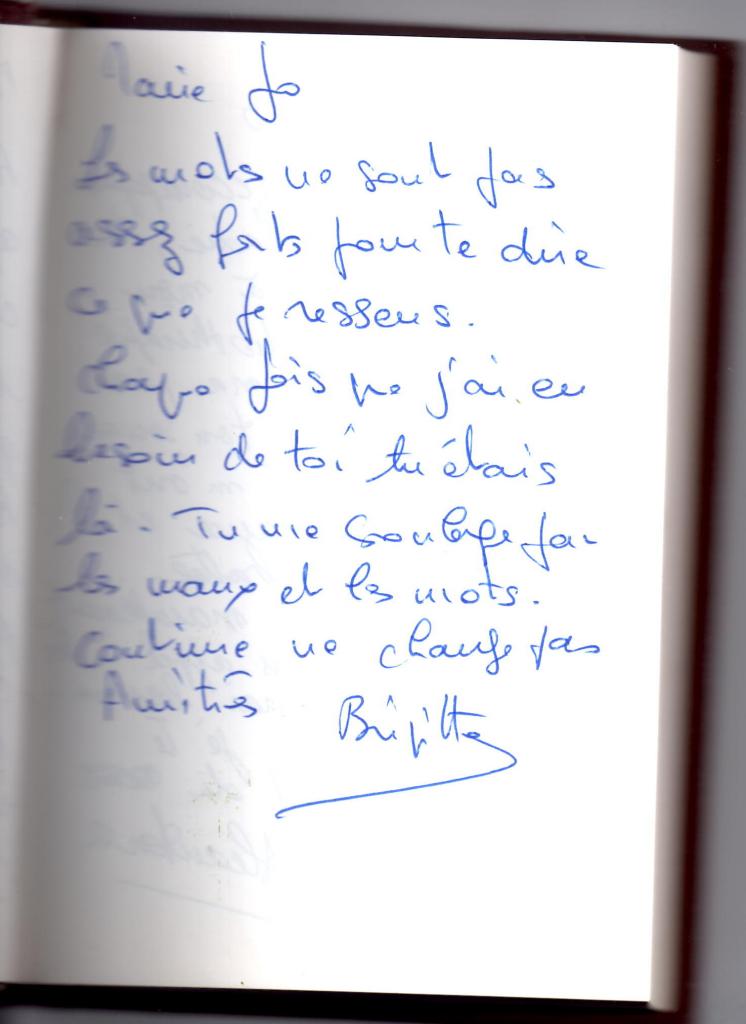 Marie Jo
Les mots ne sont pas
assez forts pour te dire
ce que je ressens.
Chaque fois que j'ai eu
besoin de toi tu étais
là. Tu me soulage par
les maux et les mots.
Continue ne change pas
Amitiés Brigitte